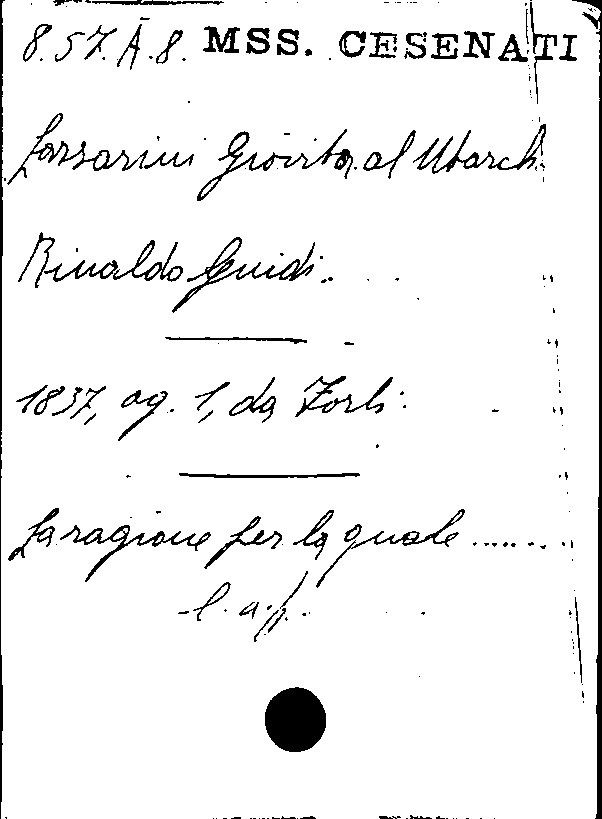 8.57.A.8. MSS. CESENATI
Lazzarini Giovita al March.
Rinaldo Guidi.
1837, ag. 1, da Forlì.
La ragione per la quale .......
l. a. f.